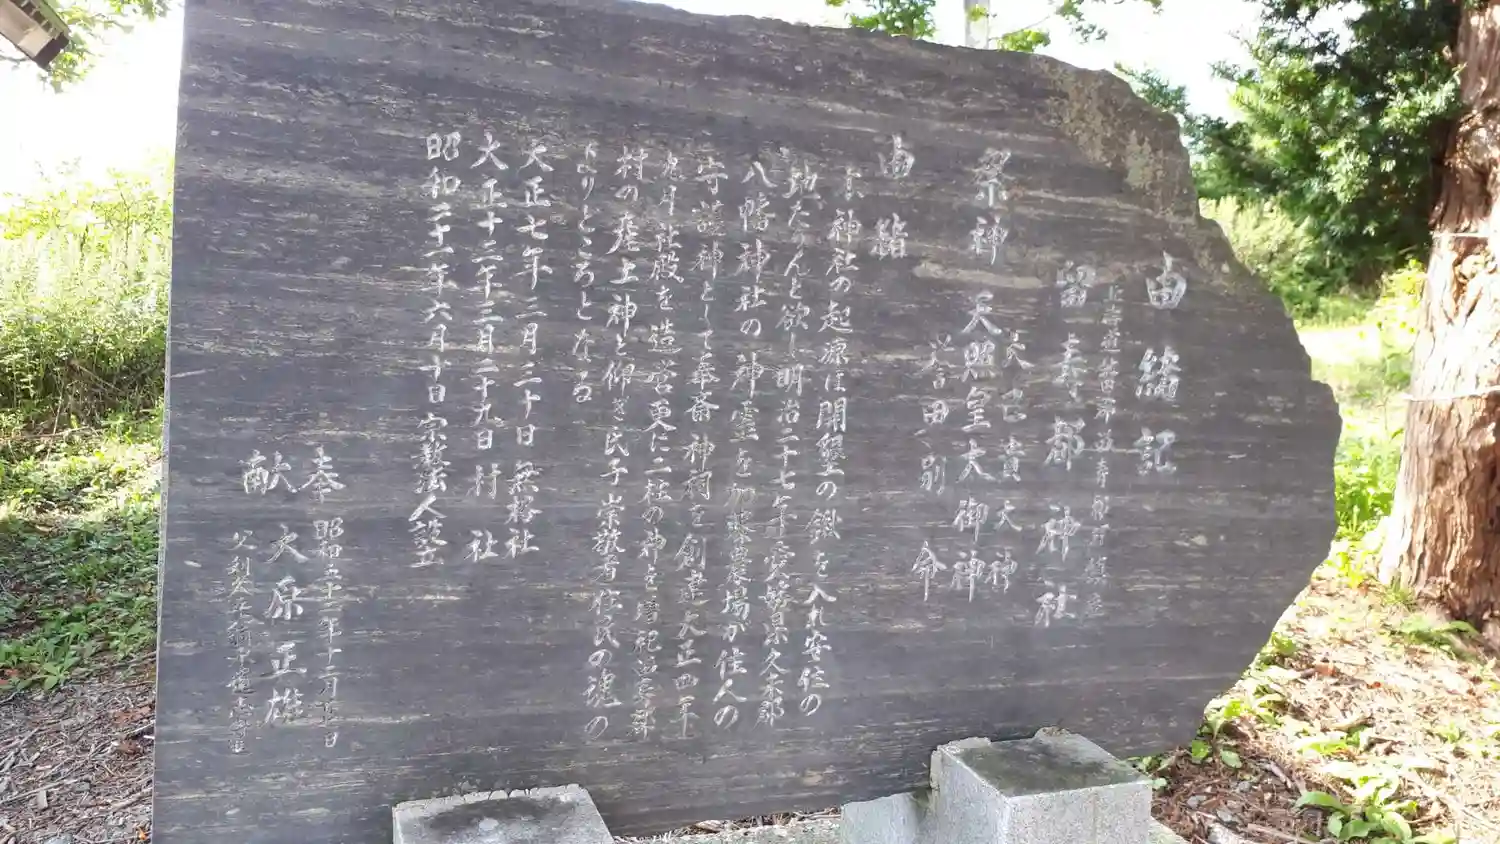 由緒記
北海道虻田郡
留寿都神社
祭神
大己貴大神
天照皇大御神
誉田別命
由緒
本神社の起源は開墾の鍬を入れ安住の
地たらんと欲し明治二十七年愛媛県久米郡
八幡神社の神霊を加藤農場が住人の
守護神として奉斎神祠を創建大正四年
九月社殿を造営更に二柱の神を増祀留寿都
村の産土神と仰ぎ氏子崇敬者住民の魂の
よりところとなる
大正七年三月三十日無格社
大正十二年三月二十九日村社
昭和二十一年六月十日宗教法人設立
奉献
昭和五十二年十二月
大原正雄
父利